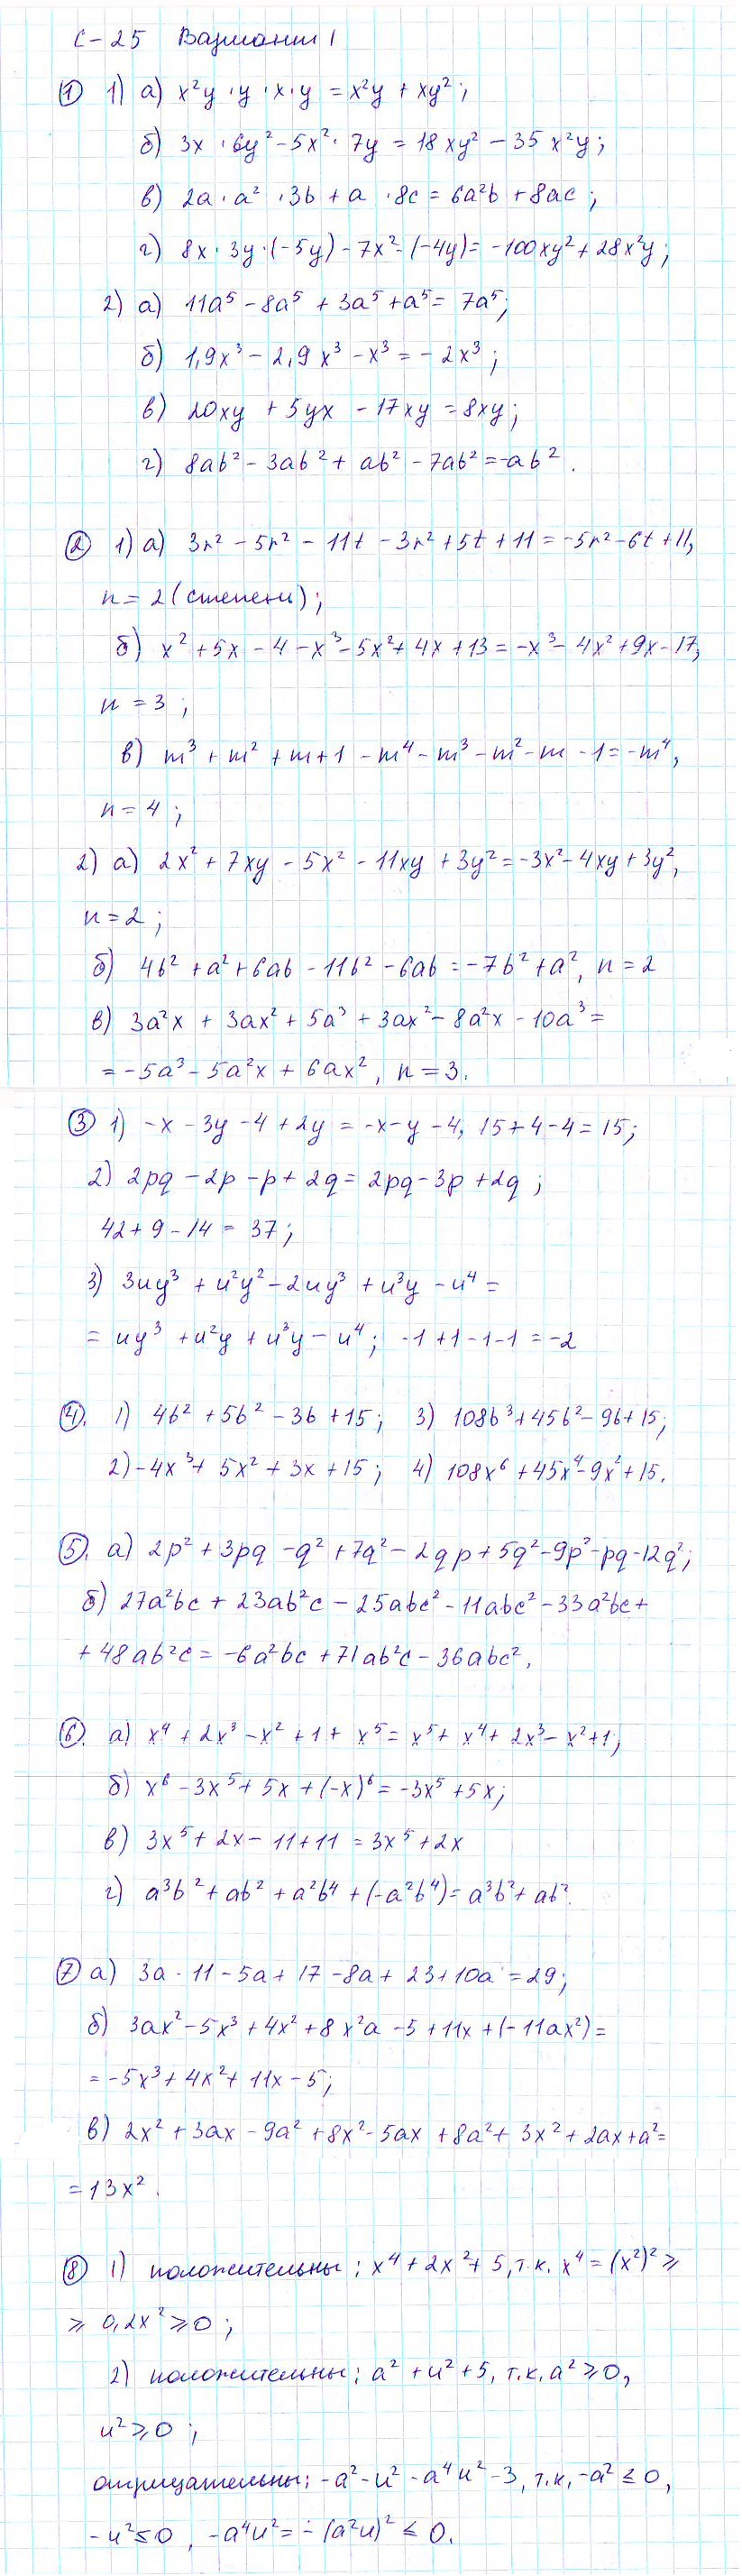 С-25 Вариант 1
① 1) а) x²y · y · x · y = x²y + xy²;
б) 3x · 6y² - 5x² · 7y = 18xy² - 35x²y;
в) 2a · a² · 3b + a · 8c = 6a²b + 8ac;
г) 8x · 3y · (-5y) - 7x² · (-4y) = -100xy² + 28x²y;
2) а) 11a⁵ - 8a⁵ + 3a⁵ + a⁵ = 7a⁵;
б) 1,9x³ - 2,9x³ - x³ = -2x³;
в) 20xy + 5yx - 17xy = 8xy;
г) 8ab² - 3ab² + ab² - 7ab² = -ab².
② 1) а) 3r² - 5r² - 11t - 3r² + 5t + 11 = -5r² - 6t + 11,
n = 2 (степени);
б) x² + 5x - 4 - x³ - 5x² + 4x + 13 = -x³ - 4x² + 9x - 17,
n = 3;
в) m³ + m² + m + 1 - m⁴ - m³ - m² - m - 1 = -m⁴,
n = 4;
2) а) 2x² + 7xy - 5x² - 11xy + 3y² = -3x² - 4xy + 3y²,
n = 2;
б) 4b² + a² + 6ab - 11b² - 6ab = -7b² + a², n = 2
в) 3a²x + 3ax² + 5a³ + 3ax² - 8a²x - 10a³ =
= -5a³ - 5a²x + 6ax², n = 3.
③ 1) -x - 3y - 4 + 2y = -x - y - 4, 15 + 4 - 4 = 15;
2) 2pq - 2p - p + 2q = 2pq - 3p + 2q;
42 + 9 - 14 = 37;
3) 3uy³ + u²y² - 2uy³ + u³y - u⁴ =
= uy³ + u²y + u³y - u⁴; -1 + 1 - 1 - 1 = -2
④. 1) 4b² + 5b² - 3b + 15; 3) 108b³ + 45b² - 9b + 15;
2) -4x³ + 5x² + 3x + 15; 4) 108x⁶ + 45x⁴ - 9x² + 15.
⑤. а) 2p² + 3pq - q² + 7q² - 2qp + 5q² - 9p² - pq - 12q²;
б) 27a²bc + 23ab²c - 25abc² - 11abc² - 33a²bc +
+ 48ab²c = -6a²bc + 71ab²c - 36abc².
⑥. а) x⁴ + 2x³ - x² + 1 + x⁵ = x⁵ + x⁴ + 2x³ - x² + 1;
б) x⁶ - 3x⁵ + 5x + (-x)⁶ = -3x⁵ + 5x;
в) 3x⁵ + 2x - 11 + 11 = 3x⁵ + 2x
г) a³b² + ab² + a²b⁴ + (-a²b⁴) = a³b² + ab².
⑦ а) 3a - 11 - 5a + 17 - 8a + 23 + 10a = 29;
б) 3ax² - 5x³ + 4x² + 8x²a - 5 + 11x + (-11ax²) =
= -5x³ + 4x² + 11x - 5;
в) 2x² + 3ax - 9a² + 8x² - 5ax + 8a² + 3x² + 2ax + a² =
= 13x².
⑧ 1) положительны; x⁴ + 2x² + 5, т.к. x⁴ = (x²)² ⩾
⩾ 0, 2x² ⩾ 0;
2) положительны; a² + u² + 5, т.к. a² ⩾ 0,
u² ⩾ 0;
отрицательны; -a² - u² - a⁴u² - 3, т.к. -a² ≤ 0,
-u² ≤ 0, -a⁴u² = -(a²u)² ≤ 0.